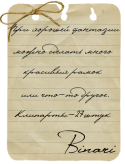 При хорошей фантазии
можно сделать много
красивых рамок
или что-то другое.
Клипартов-29 штук
Binari